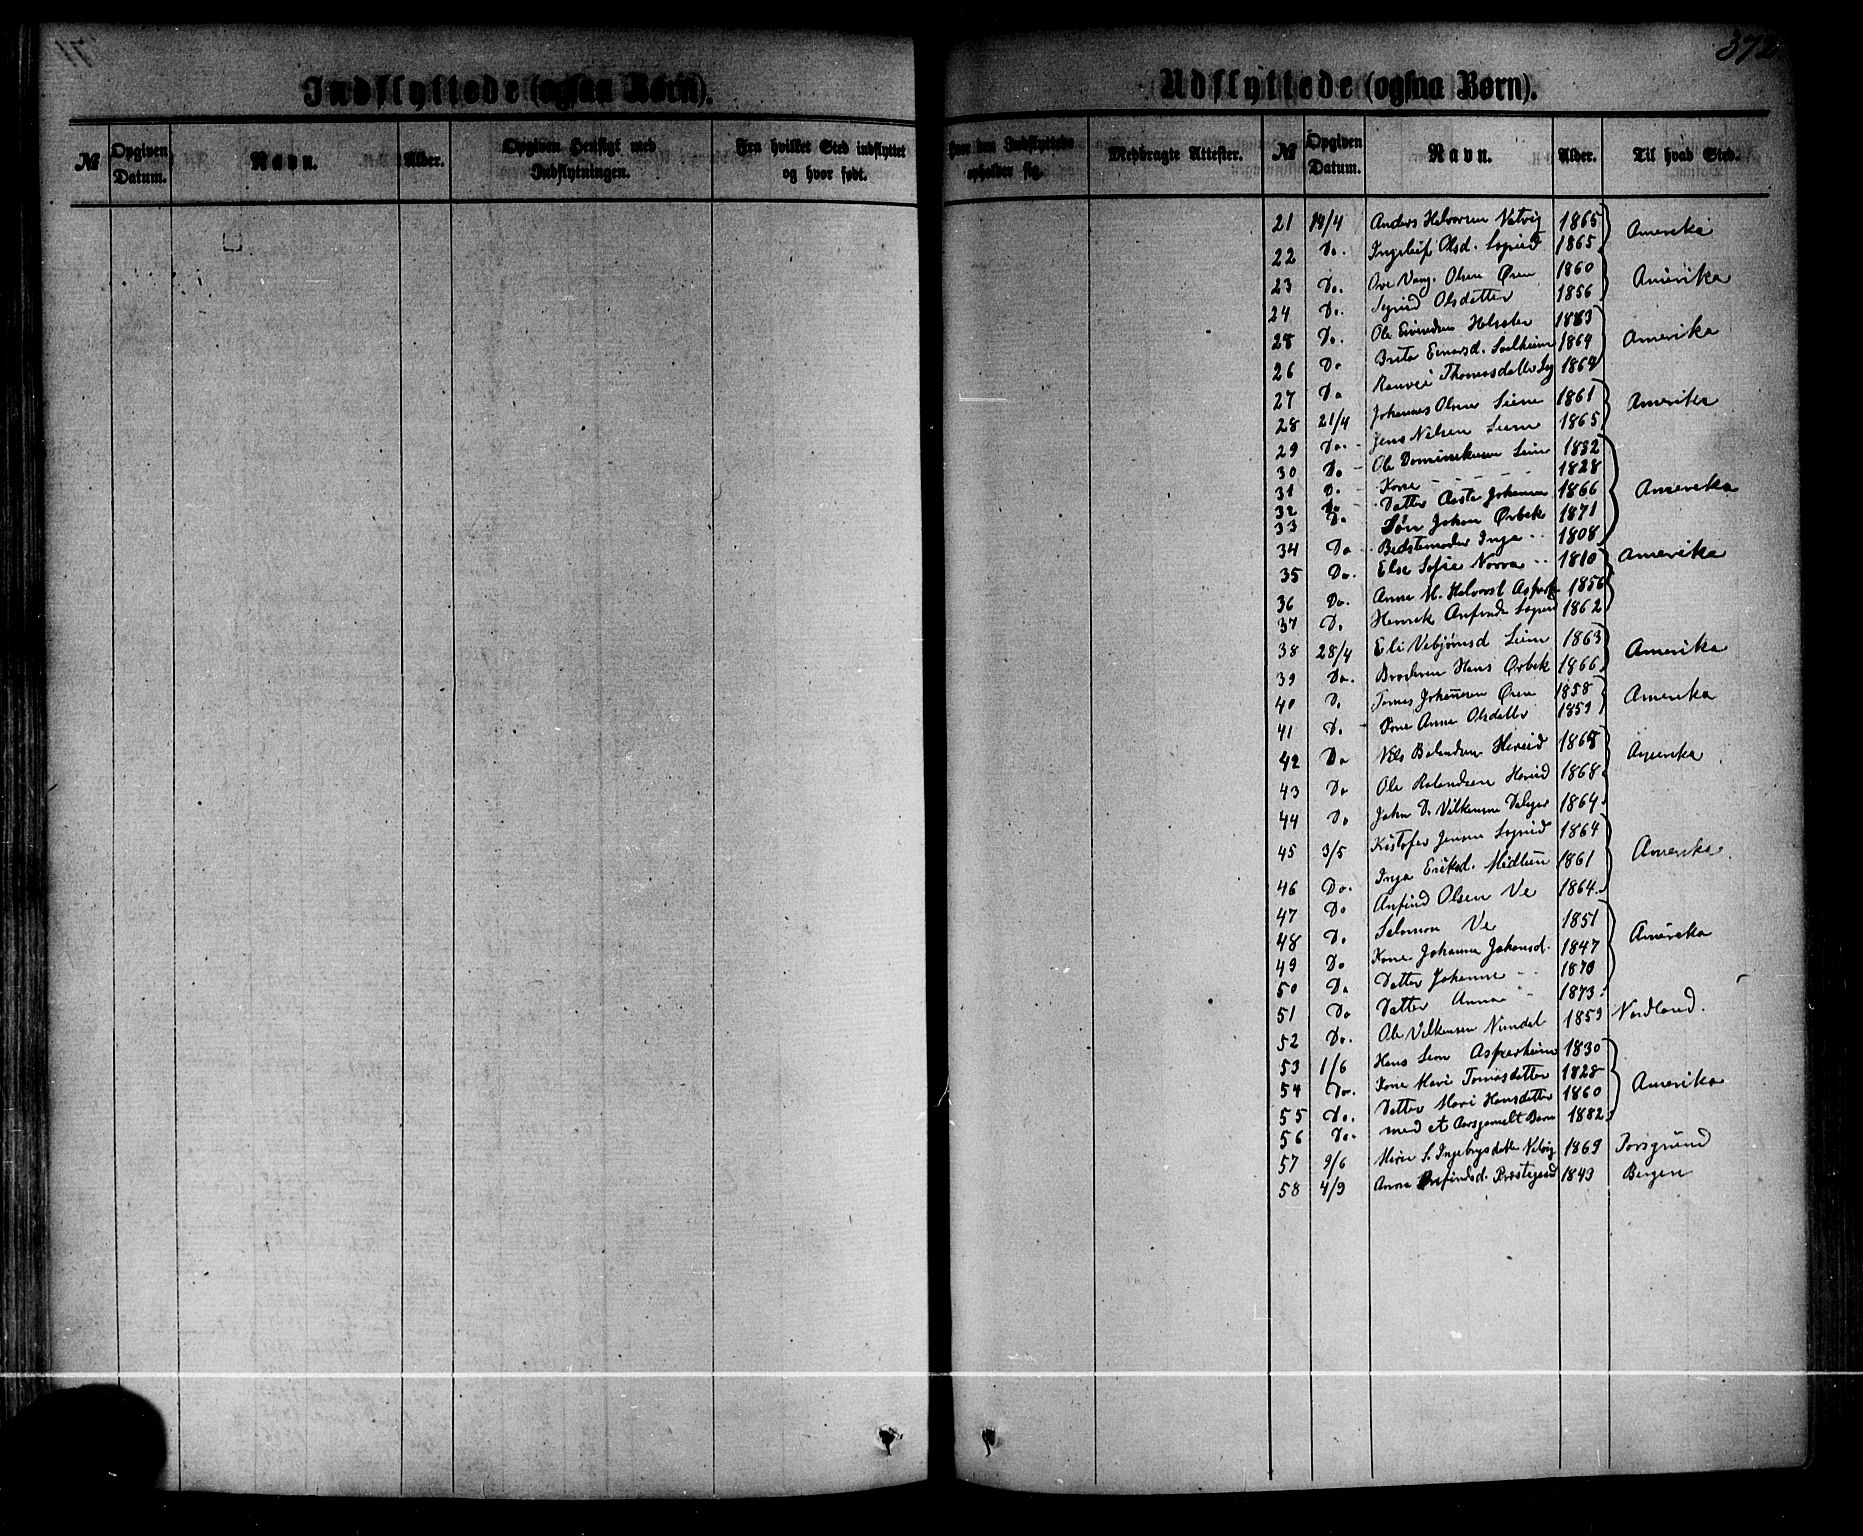 372
Indflyttede (ogsaa Børn).
Udflyttede (ogsaa Børn).
№ Opgiven Datum. Navn. Alder. Opgiven Hensigt med Indflytningen. Fra hvilket Sted indflyttet og hvor født.
Hvor den Indflyttede opholder sig. Medbragte Attester. № Opgiven Datum. Navn. Alder. Til hvad Sted.
21 14/4 Anders Halvorsen 1865 Amerika
22 Do. Ingeleif Olsd. Sogned 1865
23 Do. Ove Vang. Olsen Øren 1860 Amerika
24 Do. Sigrid Olsdatter 1856
25 Do. Ole Eivindsen 1863 Amerika
26 Do Brita Einarsd. 1864
27 Do Thomasdatter 1864
28 21/4 Johannes Olsen Seim 1861 Amerika
29 Do. Jens Nilsen Seim 1865
30 Do Ole Dominikusen Seim 1832
31 D. Kone 1828 Amerika
32 Do Datter Johanna 1866
33 Do Søn Johan Ørbek 1871
34 Do Bedstemoder Inga 1808
35 Do. Else Sofie 1810 Amerika
36 Do. Anne M. 1856
37 D. Henrik 1862
38 28/4 Eli Vebjørnsd Seim 1863 Amerika
39 Do. Broderen Hans Ørbek 1866
40 D. Tomas Johannesen Øren 1858 Amerika
41 D. Kone Anne Olsdatter 1859
42 Do Nils Hereid 1868 Amerika
43 Do Ole Hereid 1868
44 Do John D. Vilkensen 1864
45 3/5 Kristofer Jensen 1864 Amerika
46 Do. Inga Eriksd. 1861
47 Do Anfind Olsen Ve 1864
48 D. Salomon Ve 1851 Amerika
49 Do Kone Johanna Johansd. 1847
50 Do Datter Johanne 1870
51 Do Datter Anna 1873
52 Do. Ole Vilkensen Nundal 1859 Nordland.
53 1/6 Hans Asperheim 1830
54 Do. Kone Mari Tomasdatter 1828 Amerika
55 Do. Datter Mari Hansdatter 1860
56 Do. med et Aarsgamelt Barn 1882
57 9/6 S. Ingebrigsdatter 1869 Porsgrund
58 4/9 Anna Anfindsd. 1843 Bergen